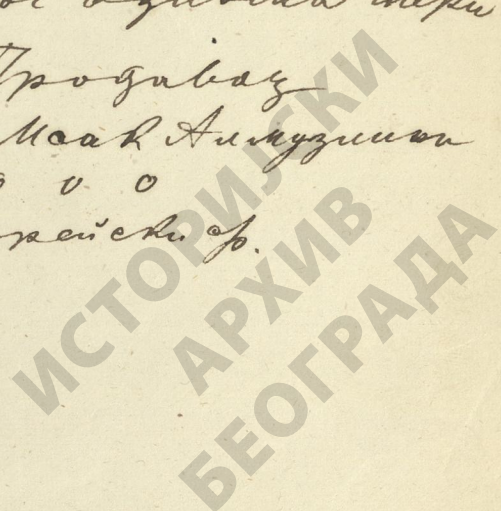 Продавац
Исак Алмузлино
0 0 0
рейски ср.
ИСТОРИЈСКИ
АРХИВ
БЕОГРАДА